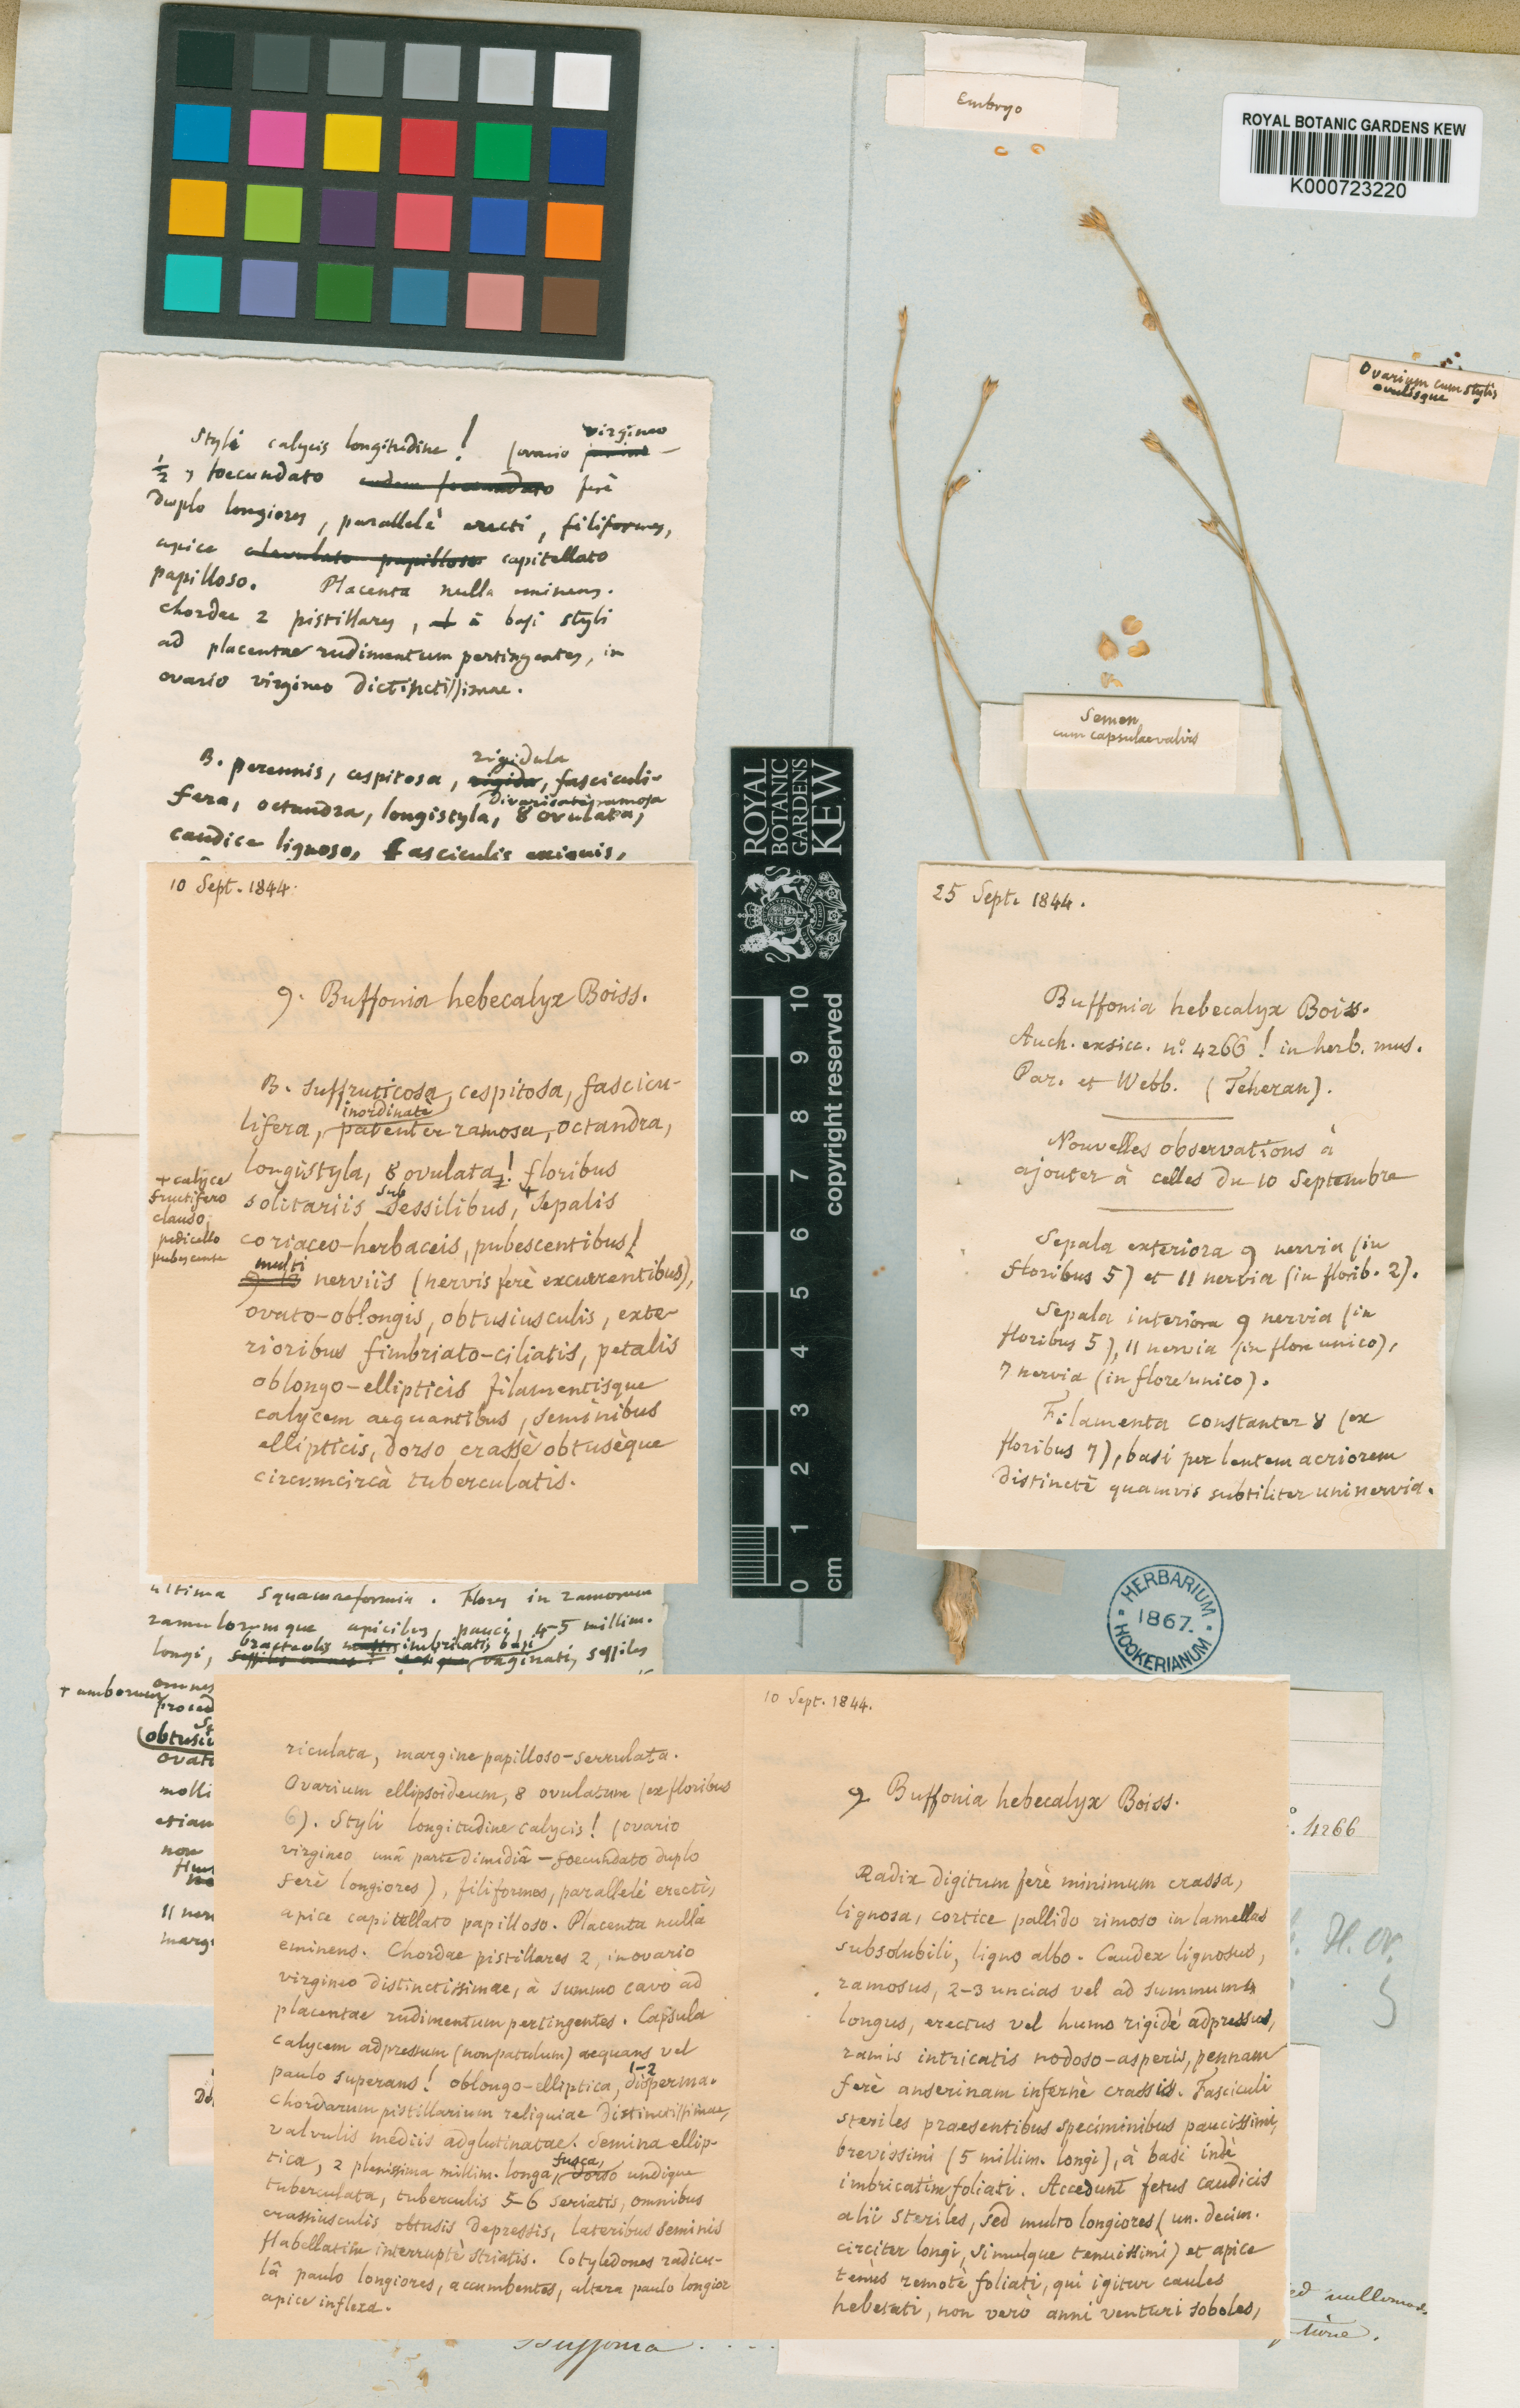 Embryo
ROYAL BOTANIC GARDENS KEW
K000723220
Ovarium cum stylis
ovulisque
Semen
cum capsulae valvis
Styli calycis longitudine! (ovario virgineo
½, foecundato ferè
duplo longiores, parallelè erecti, filiformes,
apice clavulato papilloso capitellato
papilloso. Placenta nulla eminens.
Chordae 2 pistillares, à basi styli
ad placentae rudimentum pertingentes, in
ovario virgineo distinctissimae.
B. perennis, cespitosa, rigida, rigidula, fasciculi-
fera, octandra, longistyla, divaricatè ramosa 8 ovulata,
caudice lignoso, fasciculis exiguis,
10 Sept. 1844.
9. Buffonia hebecalyx Boiss.
B. suffruticosa, cespitosa, fascicu-
inordinatè
lifera, patenter ramosa, octandra,
longistyla, 8 ovulata! floribus
solitariis sub sessilibus, + sepalis
+ calyce
fructifero
clauso,
pedicello
pubescente
coriaceo-herbaceis, pubescentibus!
multi
nerviis (nervis ferè excurrentibus),
ovato-oblongis, obtusiusculis, exte-
rioribus fimbriato-ciliatis, petalis
oblongo-ellipticis filamentisque
calycem aequantibus, seminibus
ellipticis, dorso crassè obtusèque
circumcircà tuberculatis.
ROYAL
BOTANIC
GARDENS
KEW
0 1 2 3 4 5 6 7 8 9 10
cm
copyright reserved
25 Sept. 1844.
Buffonia hebecalyx Boiss.
Auch. exsicc. n°. 4266! in herb. mus.
Par. et Webb. (Teheran).
Nouvelles observations à
ajouter à celles du 10 Septembre
Sepala exteriora 9 nervia (in
floribus 5) et 11 nervia (in florib. 2).
Sepala interiora 9 nervia (in
floribus 5), 11 nervia (in flore unico),
7 nervia (in flore unico).
Filamenta constanter 8 (ex
floribus 7), basi per lentem acriorem
distinctè quamvis subtiliter uninervia.
HERBARIUM
1867.
HOOKERIANUM
ultima squamaeformia. Flores in ramorum
ramulorumque apicibus, pauci, 4-5 millim.
longi, bracteolis imbricatis basi vaginati, sessiles
omnes
+ umborum
proced
obtusiu
ovato
molli
etiam
non
11 ner
marg
riculata, margine papilloso-serrulata.
Ovarium ellipsoideum, 8 ovulatum (ex floribus
6). Styli longitudine calycis! (ovario
virgineo unâ parte dimidiâ - foecundato duplo
ferè longiores), filiformes, parallelè erecti,
apice capitellato papilloso. Placenta nulla
eminens. Chordae pistillares 2, in ovario
virgineo distinctissimae, à summo cavo ad
placentae rudimentum pertingentes. Capsula
calycem adpressum (non patulum) aequans vel
paulo superans! oblongo-elliptica, 1-2 disperma.
Chordarum pistillarium reliquiae distinctissimae,
valvulis mediis adglutinatae. Semina ellip-
tica, 2 plenissima millim. longa, fusca, dorso undique
tuberculata, tuberculis 5-6 seriatis, omnibus
crassiusculis obtusis depressis, lateribus seminis
flabellatim interruptè striatis. Cotyledones radicu-
lâ paulo longiores, accumbentes, altera paulo longior
apice inflexa.
10 Sept. 1844.
9 Buffonia hebecalyx Boiss.
Radix digitum ferè minimum crassa,
lignosa, cortice pallido rimoso in lamellas
subsolubili, ligno albo. Caudex lignosus,
ramosus, 2-3 uncias vel ad summum 4
longus, erectus vel humo rigidè adpressus,
ramis intricatis nodoso-asperis, pennam
ferè anserinam infernè crassis. Fasciculi
steriles praesentibus speciminibus paucissimi,
brevissimi (5 millim. longi), à basi indè
imbricatim foliati. Accedunt fetus caudicis
alii steriles, sed multo longiores (un. decim.
circiter longi, simulque tenuissimi) et apice
tenùs remotè foliati, qui igitur caules
hebetati, non verò anni venturi soboles,
. 4266
H. Or.
5
Buffonia